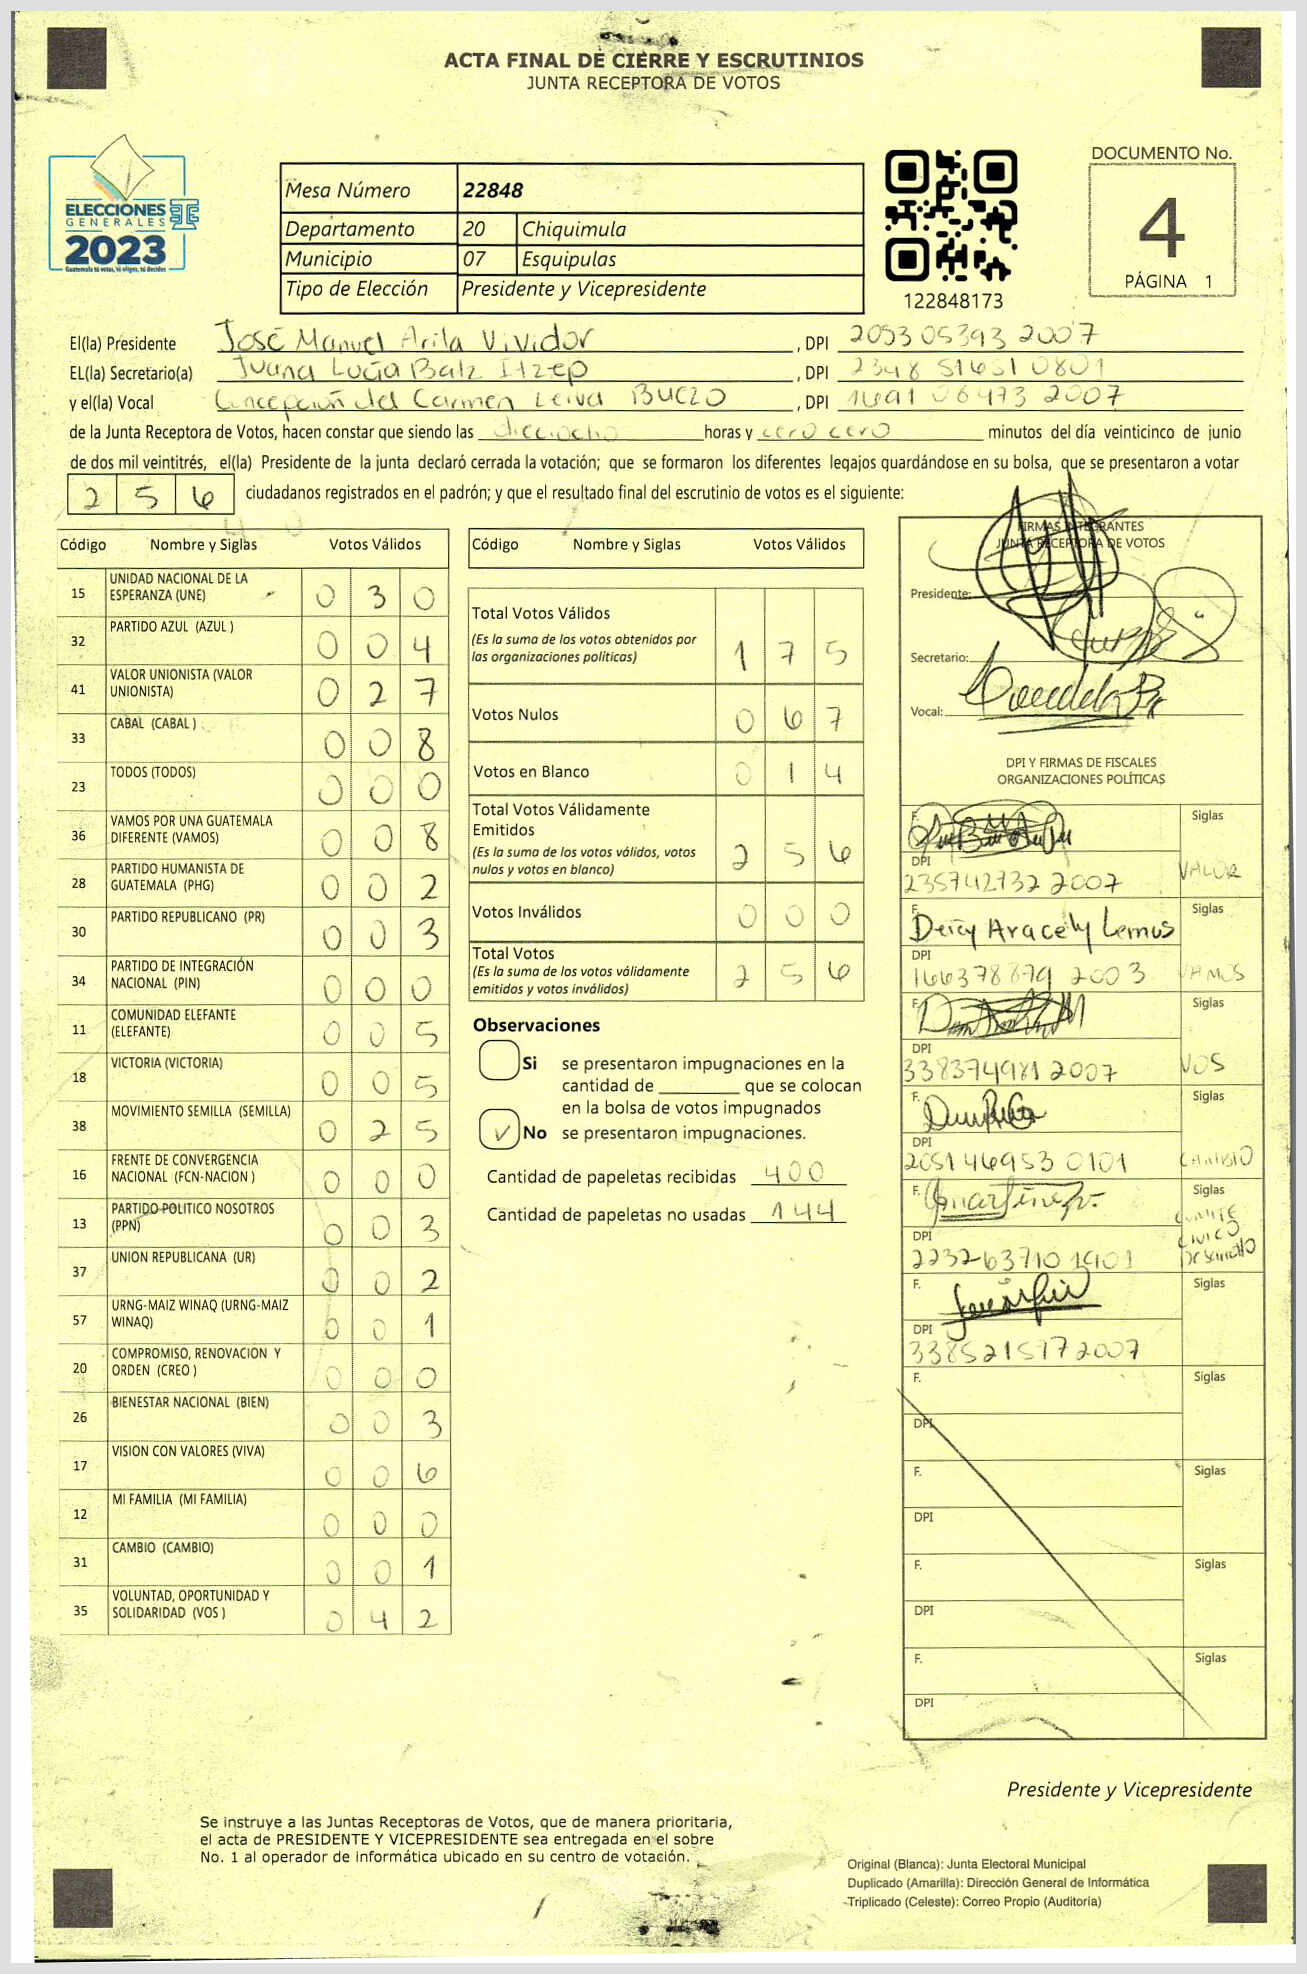 ACTA FINAL DE CIERRE Y ESCRUTINIOS
JUNTA RECEPTORA DE VOTOS
ELECCIONES
GENERALES
2023
Guatemala tú votas, tú eliges, tú decides
Mesa Número 22848
Departamento 20 Chiquimula
Municipio 07 Esquipulas
Tipo de Elección Presidente y Vicepresidente
122848173
DOCUMENTO No.
4
PÁGINA 1
El(la) Presidente José Manuel Arila Vividor, DPI 2053 05393 2007
EL(la) Secretario(a) Juana Lucía Batz Itzep, DPI 2348 51651 0801
y el(la) Vocal Concepción del Carmen Leiva, DPI 1691 06473 2007
de la Junta Receptora de Votos, hacen constar que siendo las dieciocho horas y cero cero minutos del día veinticinco de junio
de dos mil veintitrés, el(la) Presidente de la junta declaró cerrada la votación; que se formaron los diferentes legajos guardándose en su bolsa, que se presentaron a votar
2 5 6 ciudadanos registrados en el padrón; y que el resultado final del escrutinio de votos es el siguiente:
Código Nombre y Siglas Votos Válidos
15 UNIDAD NACIONAL DE LA ESPERANZA (UNE) 0 3 0
32 PARTIDO AZUL (AZUL ) 0 0 4
41 VALOR UNIONISTA (VALOR UNIONISTA) 0 2 7
33 CABAL (CABAL ) 0 0 8
23 TODOS (TODOS) 0 0 0
36 VAMOS POR UNA GUATEMALA DIFERENTE (VAMOS) 0 0 8
28 PARTIDO HUMANISTA DE GUATEMALA (PHG) 0 0 2
30 PARTIDO REPUBLICANO (PR) 0 0 3
34 PARTIDO DE INTEGRACIÓN NACIONAL (PIN) 0 0 0
11 COMUNIDAD ELEFANTE (ELEFANTE) 0 0 5
18 VICTORIA (VICTORIA) 0 0 5
38 MOVIMIENTO SEMILLA (SEMILLA) 0 2 5
16 FRENTE DE CONVERGENCIA NACIONAL (FCN-NACION ) 0 0 0
13 PARTIDO POLITICO NOSOTROS (PPN) 0 0 3
37 UNION REPUBLICANA (UR) 0 0 2
57 URNG-MAIZ WINAQ (URNG-MAIZ WINAQ) 0 0 1
20 COMPROMISO, RENOVACION Y ORDEN (CREO ) 0 0 0
26 BIENESTAR NACIONAL (BIEN) 0 0 3
17 VISION CON VALORES (VIVA) 0 0 6
12 MI FAMILIA (MI FAMILIA) 0 0 0
31 CAMBIO (CAMBIO) 0 0 1
35 VOLUNTAD, OPORTUNIDAD Y SOLIDARIDAD (VOS ) 0 4 2
Código Nombre y Siglas Votos Válidos
Total Votos Válidos
(Es la suma de los votos obtenidos por
las organizaciones politicas) 1 7 5
Votos Nulos 0 6 7
Votos en Blanco 0 1 4
Total Votos Válidamente
Emitidos
(Es la suma de los votos válidos, votos
nulos y votos en blanco) 2 5 6
Votos Inválidos 0 0 0
Total Votos
(Es la suma de los votos válidamente
emitidos y votos inválidos) 2 5 6
Observaciones
Si se presentaron impugnaciones en la
cantidad de ________ que se colocan
en la bolsa de votos impugnados
✓ No se presentaron impugnaciones.
Cantidad de papeletas recibidas 400
Cantidad de papeletas no usadas 144
FIRMAS INTEGRANTES
JUNTA RECEPTORA DE VOTOS
Presidente:
Secretario:
Vocal:
DPI Y FIRMAS DE FISCALES
ORGANIZACIONES POLÍTICAS
F. Siglas
DPI
235742732 2007 VALOR
F. Siglas
Deicy Aracely Lemus
DPI
166378879 2003 VAMOS
F. Siglas
DPI
338374981 2007 VOS
F. Siglas
DPI
205146953 0101 CAMBIO
F. Siglas
DPI
223263710 1901 COMITE CIVICO Desarrollo
F. Siglas
DPI
338521577 2007
F. Siglas
DPI
F. Siglas
DPI
F. Siglas
DPI
F. Siglas
DPI
Presidente y Vicepresidente
Se instruye a las Juntas Receptoras de Votos, que de manera prioritaria,
el acta de PRESIDENTE Y VICEPRESIDENTE sea entregada en el sobre
No. 1 al operador de informática ubicado en su centro de votación.
Original (Blanca): Junta Electoral Municipal
Duplicado (Amarilla): Dirección General de Informática
Triplicado (Celeste): Correo Propio (Auditoría)